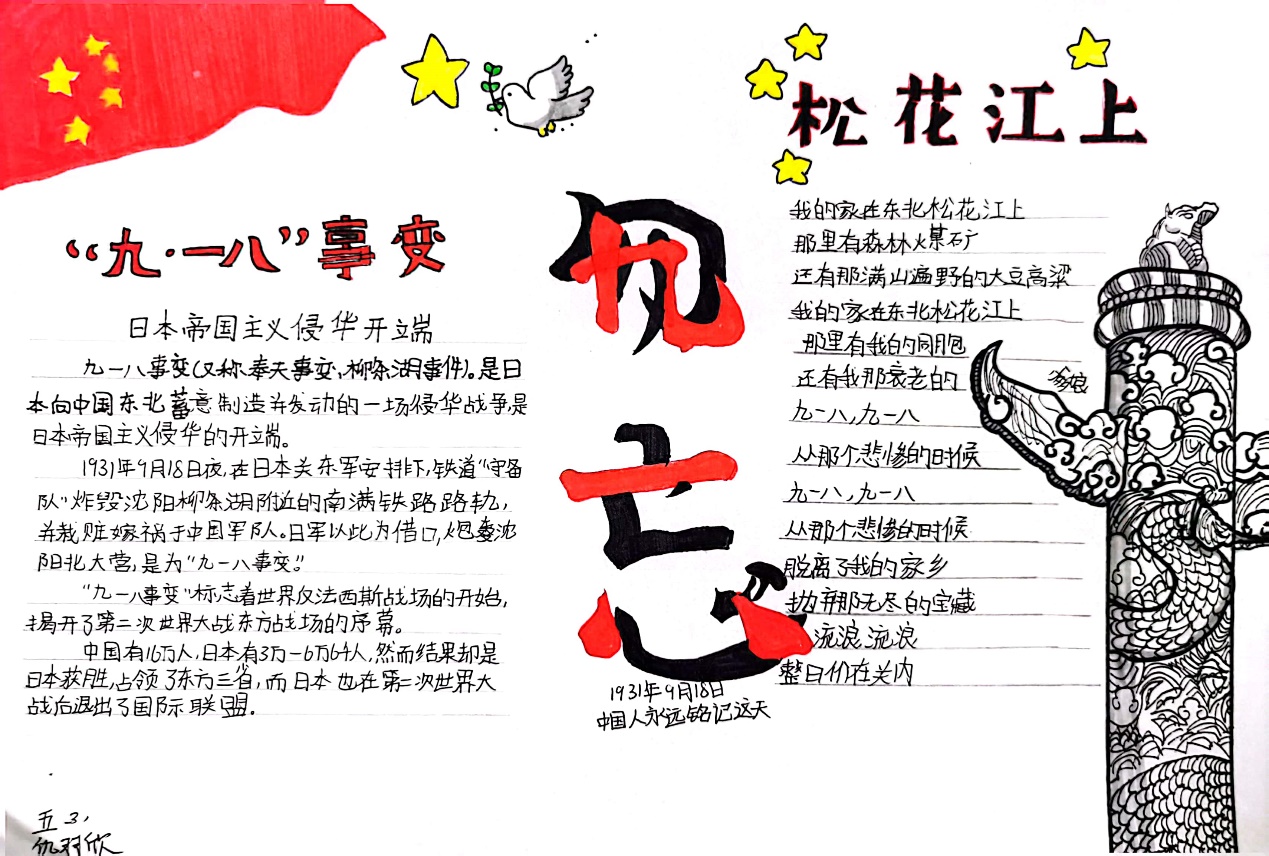 “九·一八”事变
日本帝国主义侵华开端
九一八事变(又称奉天事变、柳条湖事件)。是日
本向中国东北蓄意制造并发动的一场侵华战争,是
日本帝国主义侵华的开端。
1931年9月18日夜,在日本关东军安排下,铁道“守备
队”炸毁沈阳柳条湖附近的南满铁路路轨,
并栽赃嫁祸于中国军队。日军以此为借口,炮轰沈
阳北大营,是为“九一八事变”。
“九一八事变”标志着世界反法西斯战场的开始,
揭开了第二次世界大战东方战场的序幕。
中国有16万人,日本有3万-6万64人,然而结果却是
日本获胜,占领了东方三省,而日本也在第二次世界大
战后退出了国际联盟。
五3,
仇羽欣
勿忘
九一八
1931年9月18日
中国人永远铭记这天
松花江上
我的家在东北松花江上
那里有森林火某石矿
还有那满山遍野的大豆高粱
我的家在东北松花江上
那里有我的同胞
还有我那衰老的爹娘
九一八,九一八
从那个悲惨的时候
九一八,九一八
从那个悲惨的时候
脱离了我的家乡
抛弃那无尽的宝藏
流浪流浪
整日价在关内